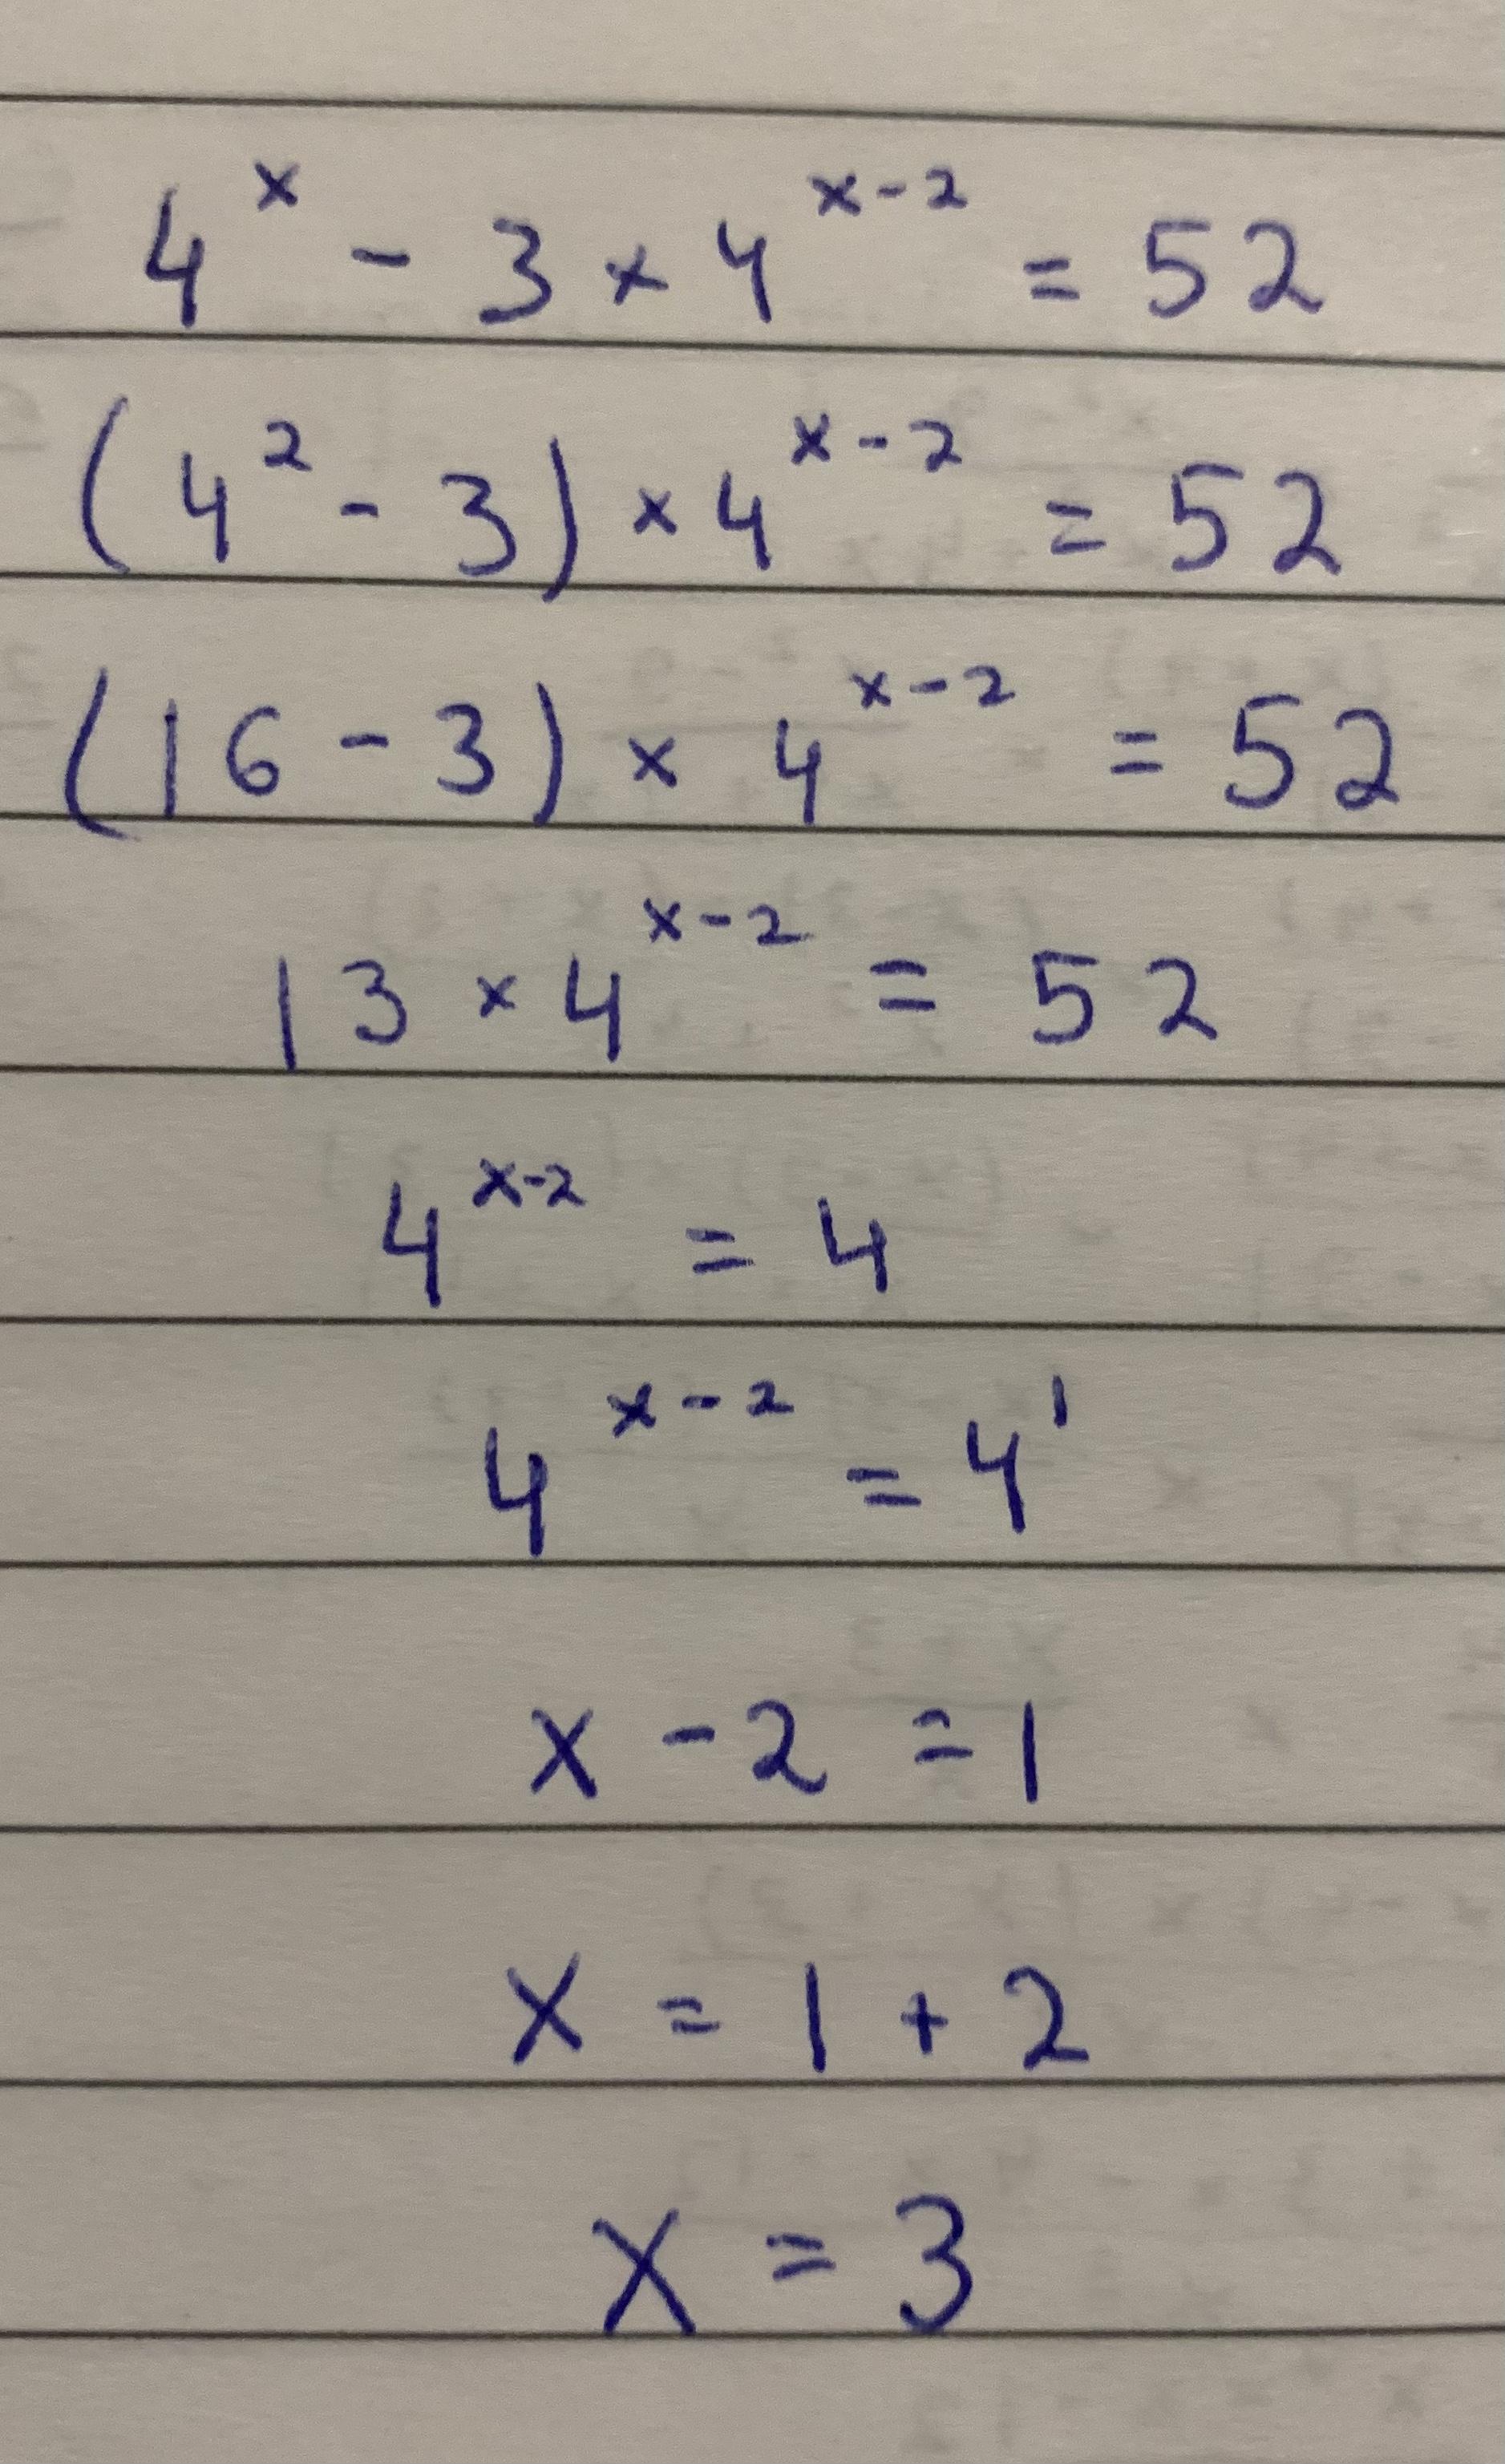 4ˣ - 3 × 4ˣ⁻² = 52
(4² - 3) × 4ˣ⁻² = 52
(16 - 3) × 4ˣ⁻² = 52
13 × 4ˣ⁻² = 52
4ˣ⁻² = 4
4ˣ⁻² = 4¹
x - 2 = 1
x = 1 + 2
x = 3